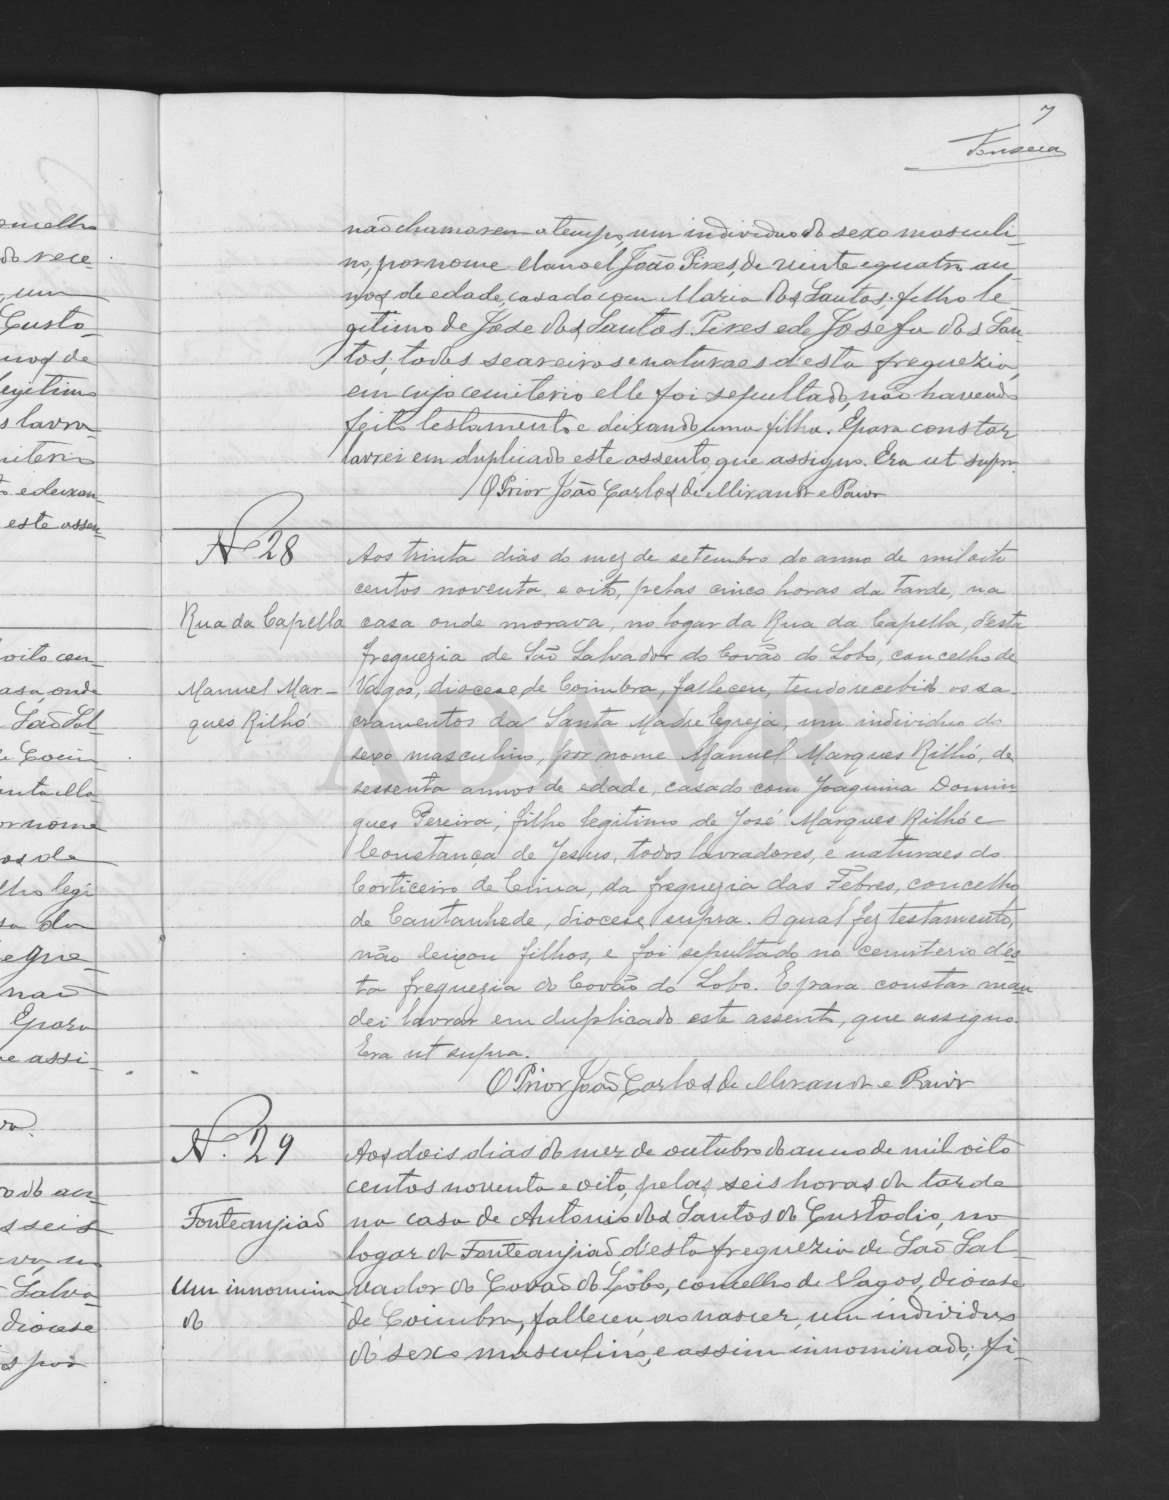 7
Fonseca
não chamarem a tempo, um individuo do sexo masculi-
no, por nome Manoel João Pires, de vinte e quatro an-
nos de edade, casado com Maria dos Santos; filho le-
gitimo de José dos Santos Pires e de Josefa dos San-
tos; todos seareiros e naturaes d'esta freguezia,
em cujo cemiterio elle foi sepultado, não havendo
feito testamento e deixando uma filha. E para constar
lavrei em duplicado este assento, que assigno. Era ut supra.
O Prior João Carlos de Miranda e Paiva
Nº 28
Rua da Capella
Manuel Mar-
ques Rilhó
Aos trinta dias do mez de setembro do anno de mil oito
centos noventa, e oito, pelas cinco horas da tarde, na
casa onde morava, no logar da Rua da Capella, d'esta
freguezia de São Salvador do Covão do Lobo, concelho de
Vagos, diocese de Coimbra, falleceu, tendo recebido os sa-
cramentos da Santa Madre Egreja, um individuo do
sexo masculino, por nome Manuel Marques Rilhó, de
sessenta annos de edade, casado com Joaquina Domin-
gues Pereira; filho legitimo de José Marques Rilhó e
Constança de Jesus, todos lavradores, e naturaes do
Corticeiro de Cima, da freguezia das Febres, concelho
de Cantanhede, diocese supra. A qual fez testamento,
não deixou filhos, e foi sepultado no cemiterio des-
ta freguezia do Covão do Lobo. E para constar man-
dei lavrar em duplicado este assento, que assigno.
Era ut supra.
O Prior João Carlos de Miranda e Paiva
N. 29
Fonteanjião
Um innomina
do
Aos dois dias do mez de outubro do anno de mil oito
centos noventa e oito, pelas seis horas da tarde
na casa de Antonio dos Santos do Custodio, no
logar da Fonteanjião d'esta freguezia de São Sal-
vador do Covão do Lobo, concelho de Vagos, diocese
de Coimbra, falleceu, ao nascer, um individuo
do sexo masculino, e assim innominado; fi-
ADAVR